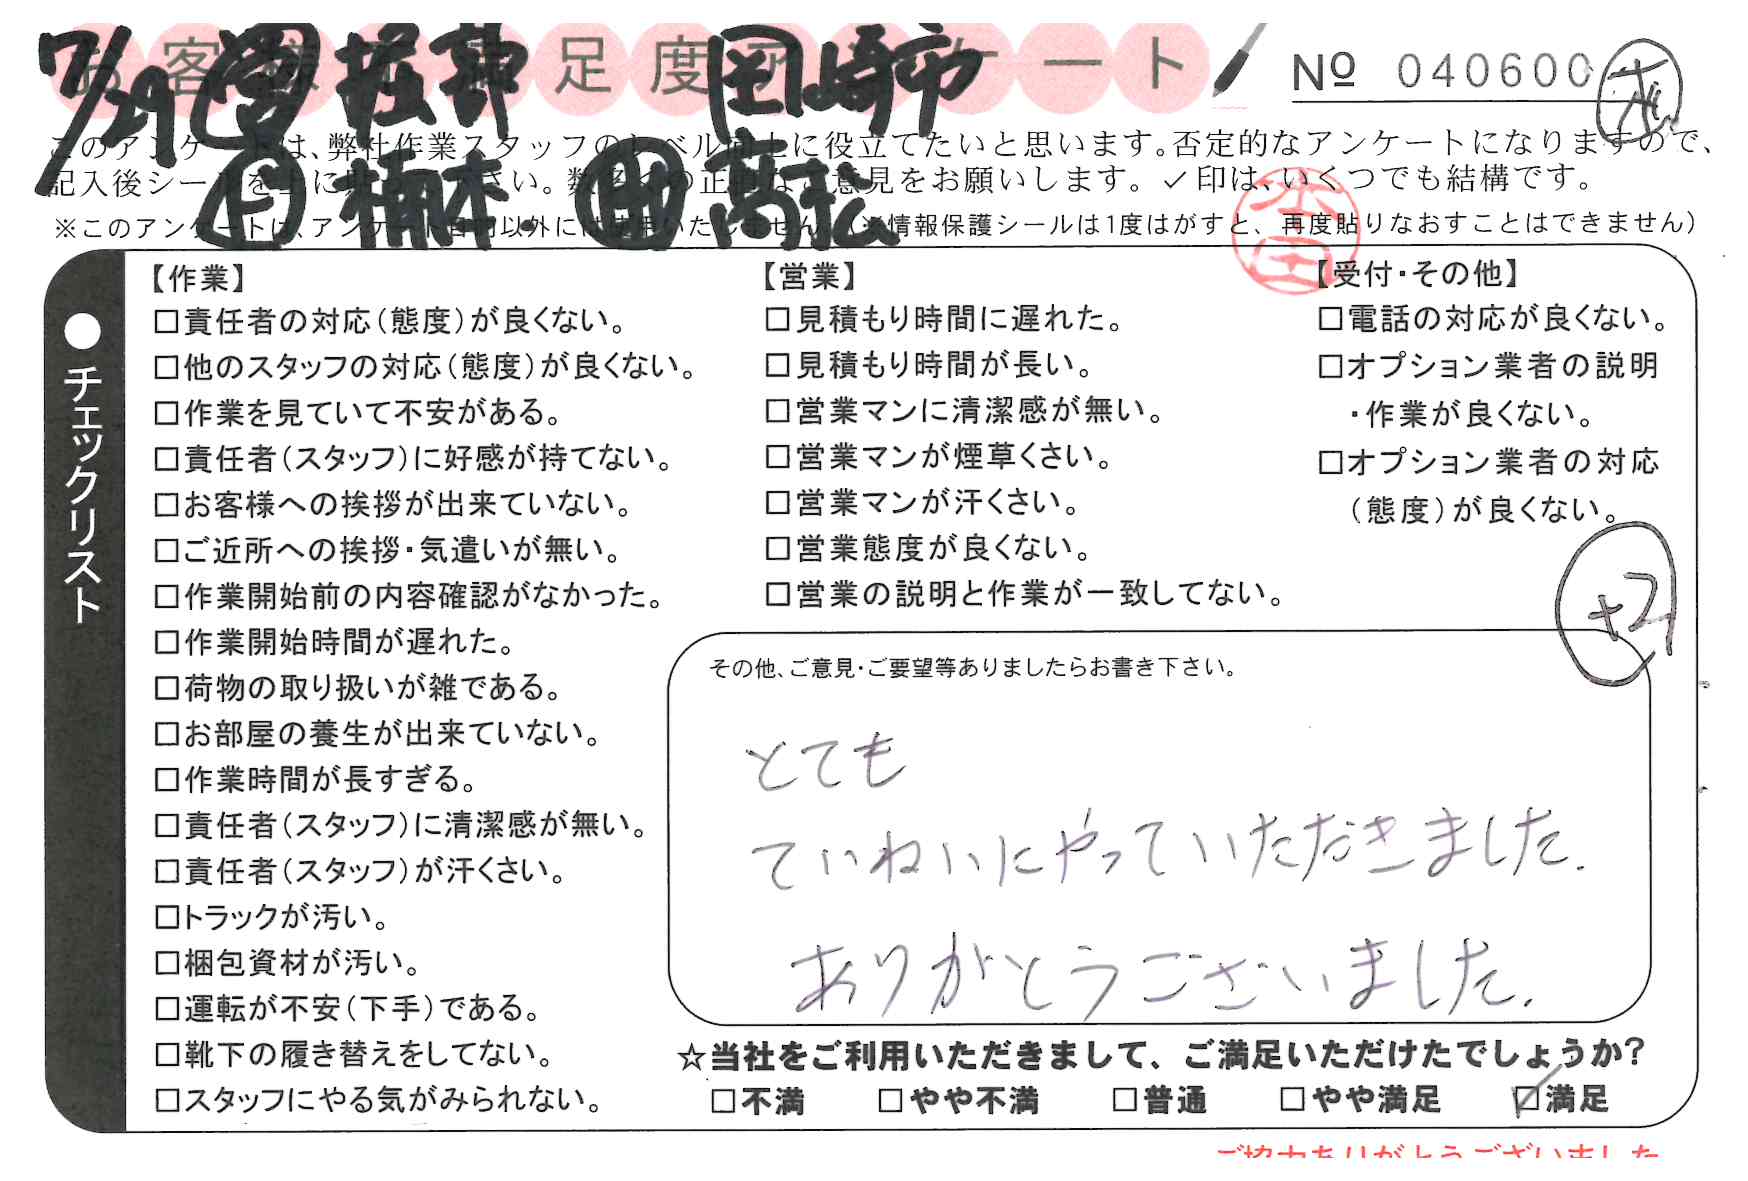 お客様満足度アンケート
7/29 堀部 岡崎市
楠本 高松
Nº 040600
このアンケートは、弊社作業スタッフのレベル向上に役立てたいと思います。否定的なアンケートになりますので、
記入後シールを上に貼って下さい。数多くの正直なご意見をお願いします。✓印は、いくつでも結構です。
※このアンケートは、アンケート目的以外には使用いたしません。(※情報保護シールは1度はがすと、再度貼りなおすことはできません)
本田
●チェックリスト
【作業】
□責任者の対応(態度)が良くない。
□他のスタッフの対応(態度)が良くない。
□作業を見ていて不安がある。
□責任者(スタッフ)に好感が持てない。
□お客様への挨拶が出来ていない。
□ご近所への挨拶・気遣いが無い。
□作業開始前の内容確認がなかった。
□作業開始時間が遅れた。
□荷物の取り扱いが雑である。
□お部屋の養生が出来ていない。
□作業時間が長すぎる。
□責任者(スタッフ)に清潔感が無い。
□責任者(スタッフ)が汗くさい。
□トラックが汚い。
□梱包資材が汚い。
□運転が不安(下手)である。
□靴下の履き替えをしてない。
□スタッフにやる気がみられない。
【営業】
□見積もり時間に遅れた。
□見積もり時間が長い。
□営業マンに清潔感が無い。
□営業マンが煙草くさい。
□営業マンが汗くさい。
□営業態度が良くない。
□営業の説明と作業が一致してない。
【受付・その他】
□電話の対応が良くない。
□オプション業者の説明
・作業が良くない。
□オプション業者の対応
(態度)が良くない。
+2
その他、ご意見・ご要望等ありましたらお書き下さい。
とても
ていねいにやっていただきました.
ありがとうございました.
☆当社をご利用いただきまして、ご満足いただけたでしょうか?
□不満 □やや不満 □普通 □やや満足 ☑満足
ご協力ありがとうございました